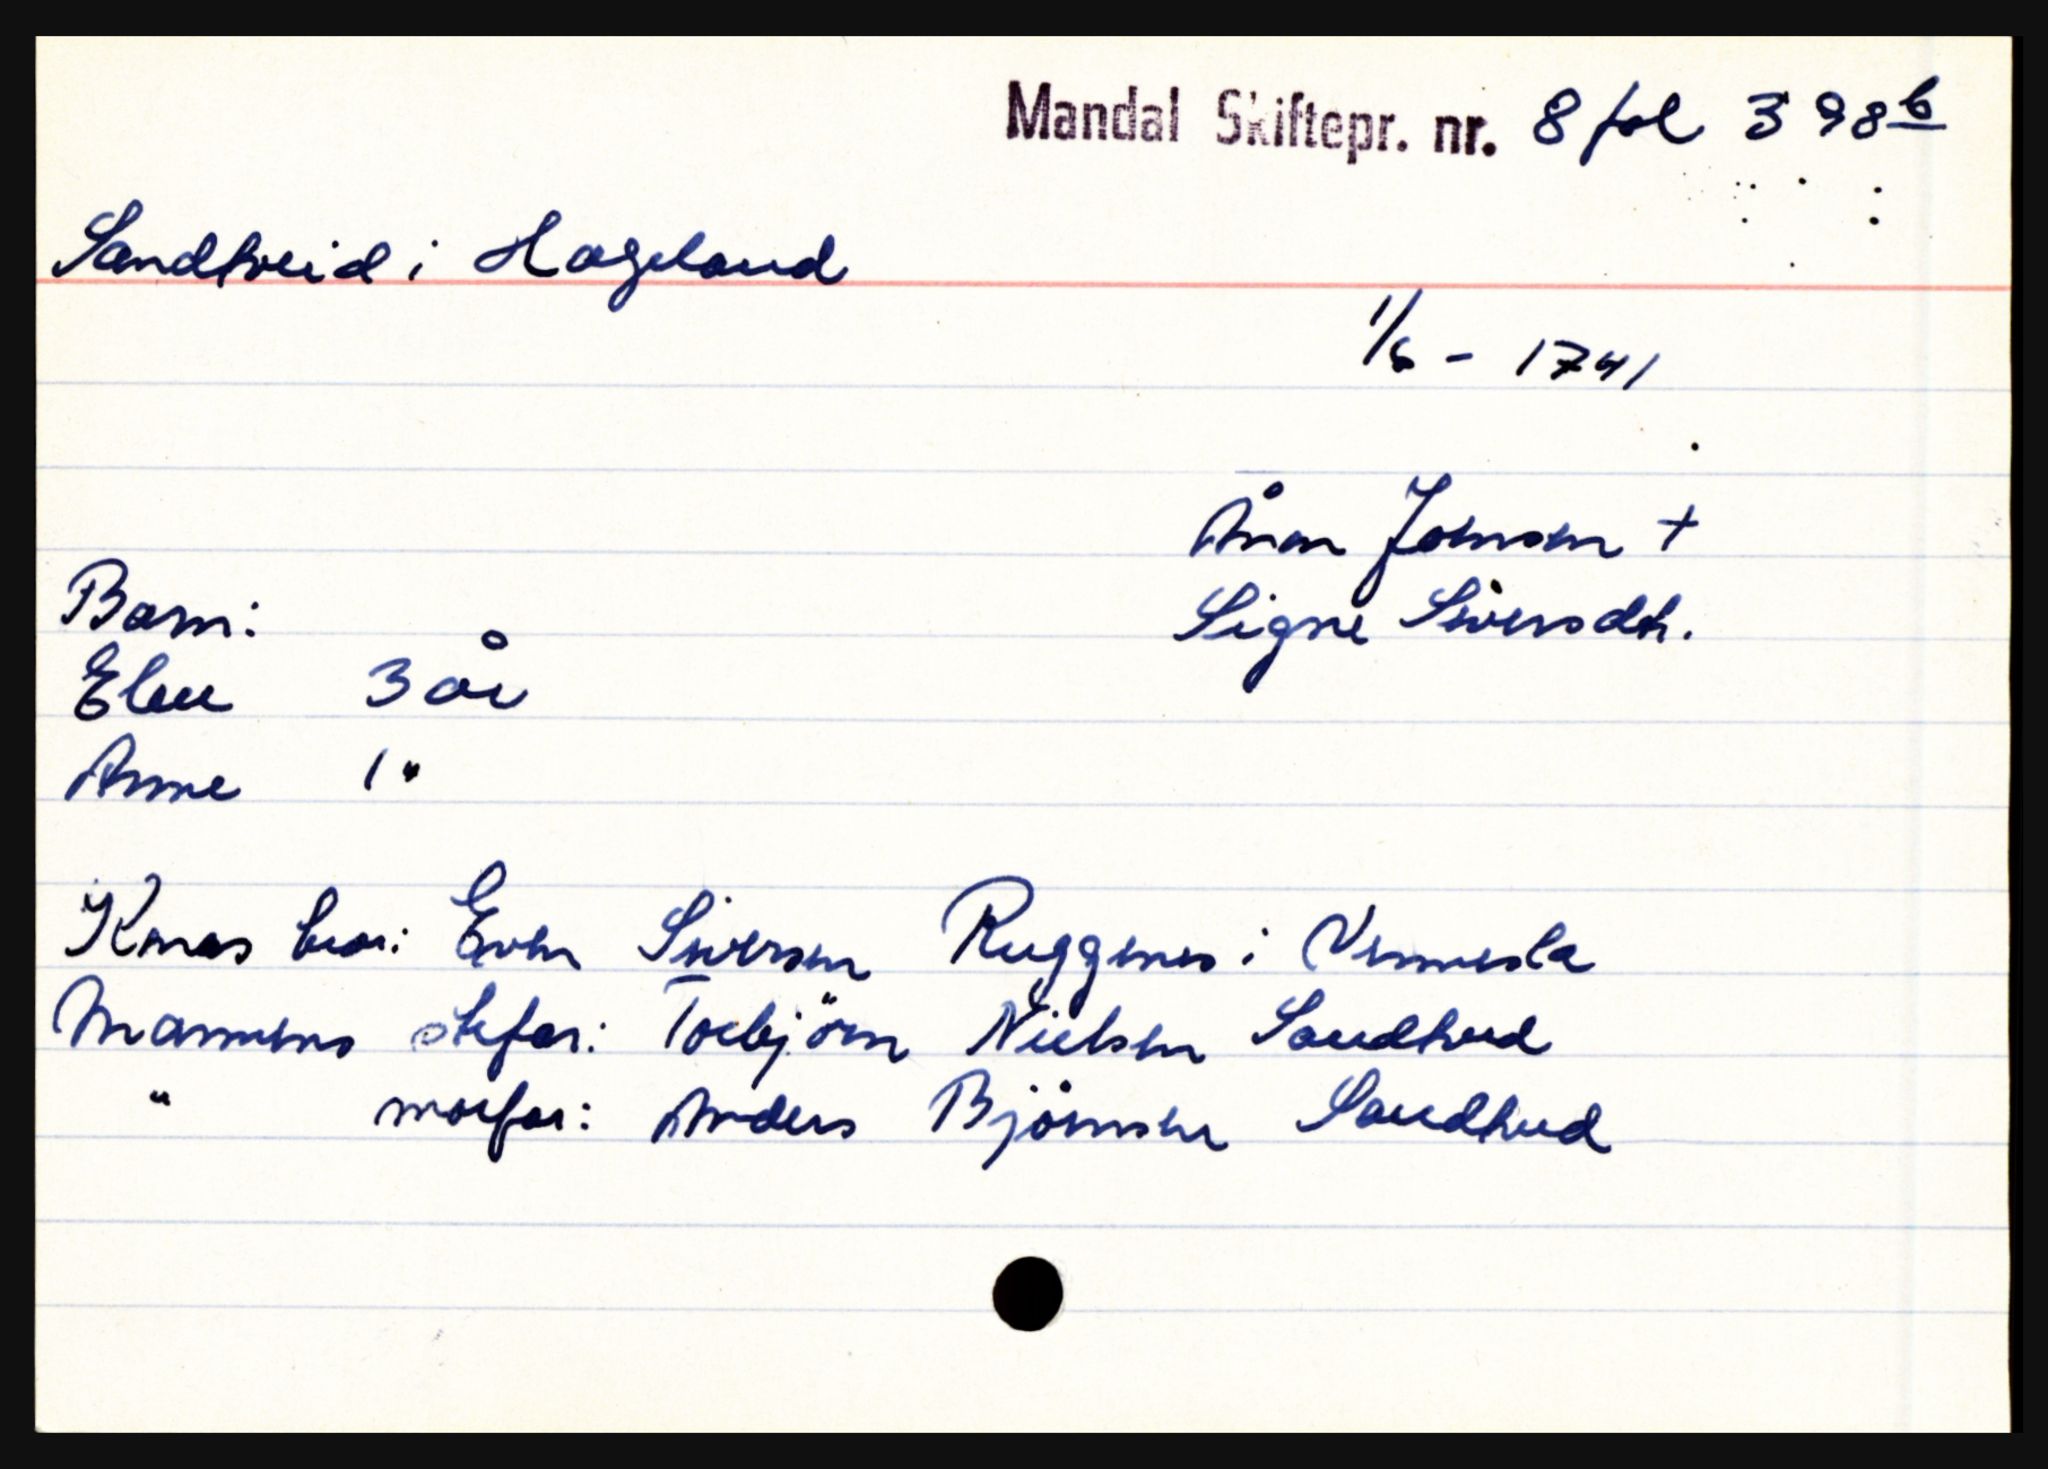 Mandal Skiftepr. nr. 8 fol 398b
Sandhveid i Hægeland
1/6 - 1741
Ånon Jonsen +
Signe Siversdtr.
Barn:
Elen 3 år
Anne 1 "
Konas bror: Even Siversen Ruggenes i Vennesla
Mannens stefar: Torbjörn Nielsen Sandhved
" morfar: Anders Björnsen Sandhved